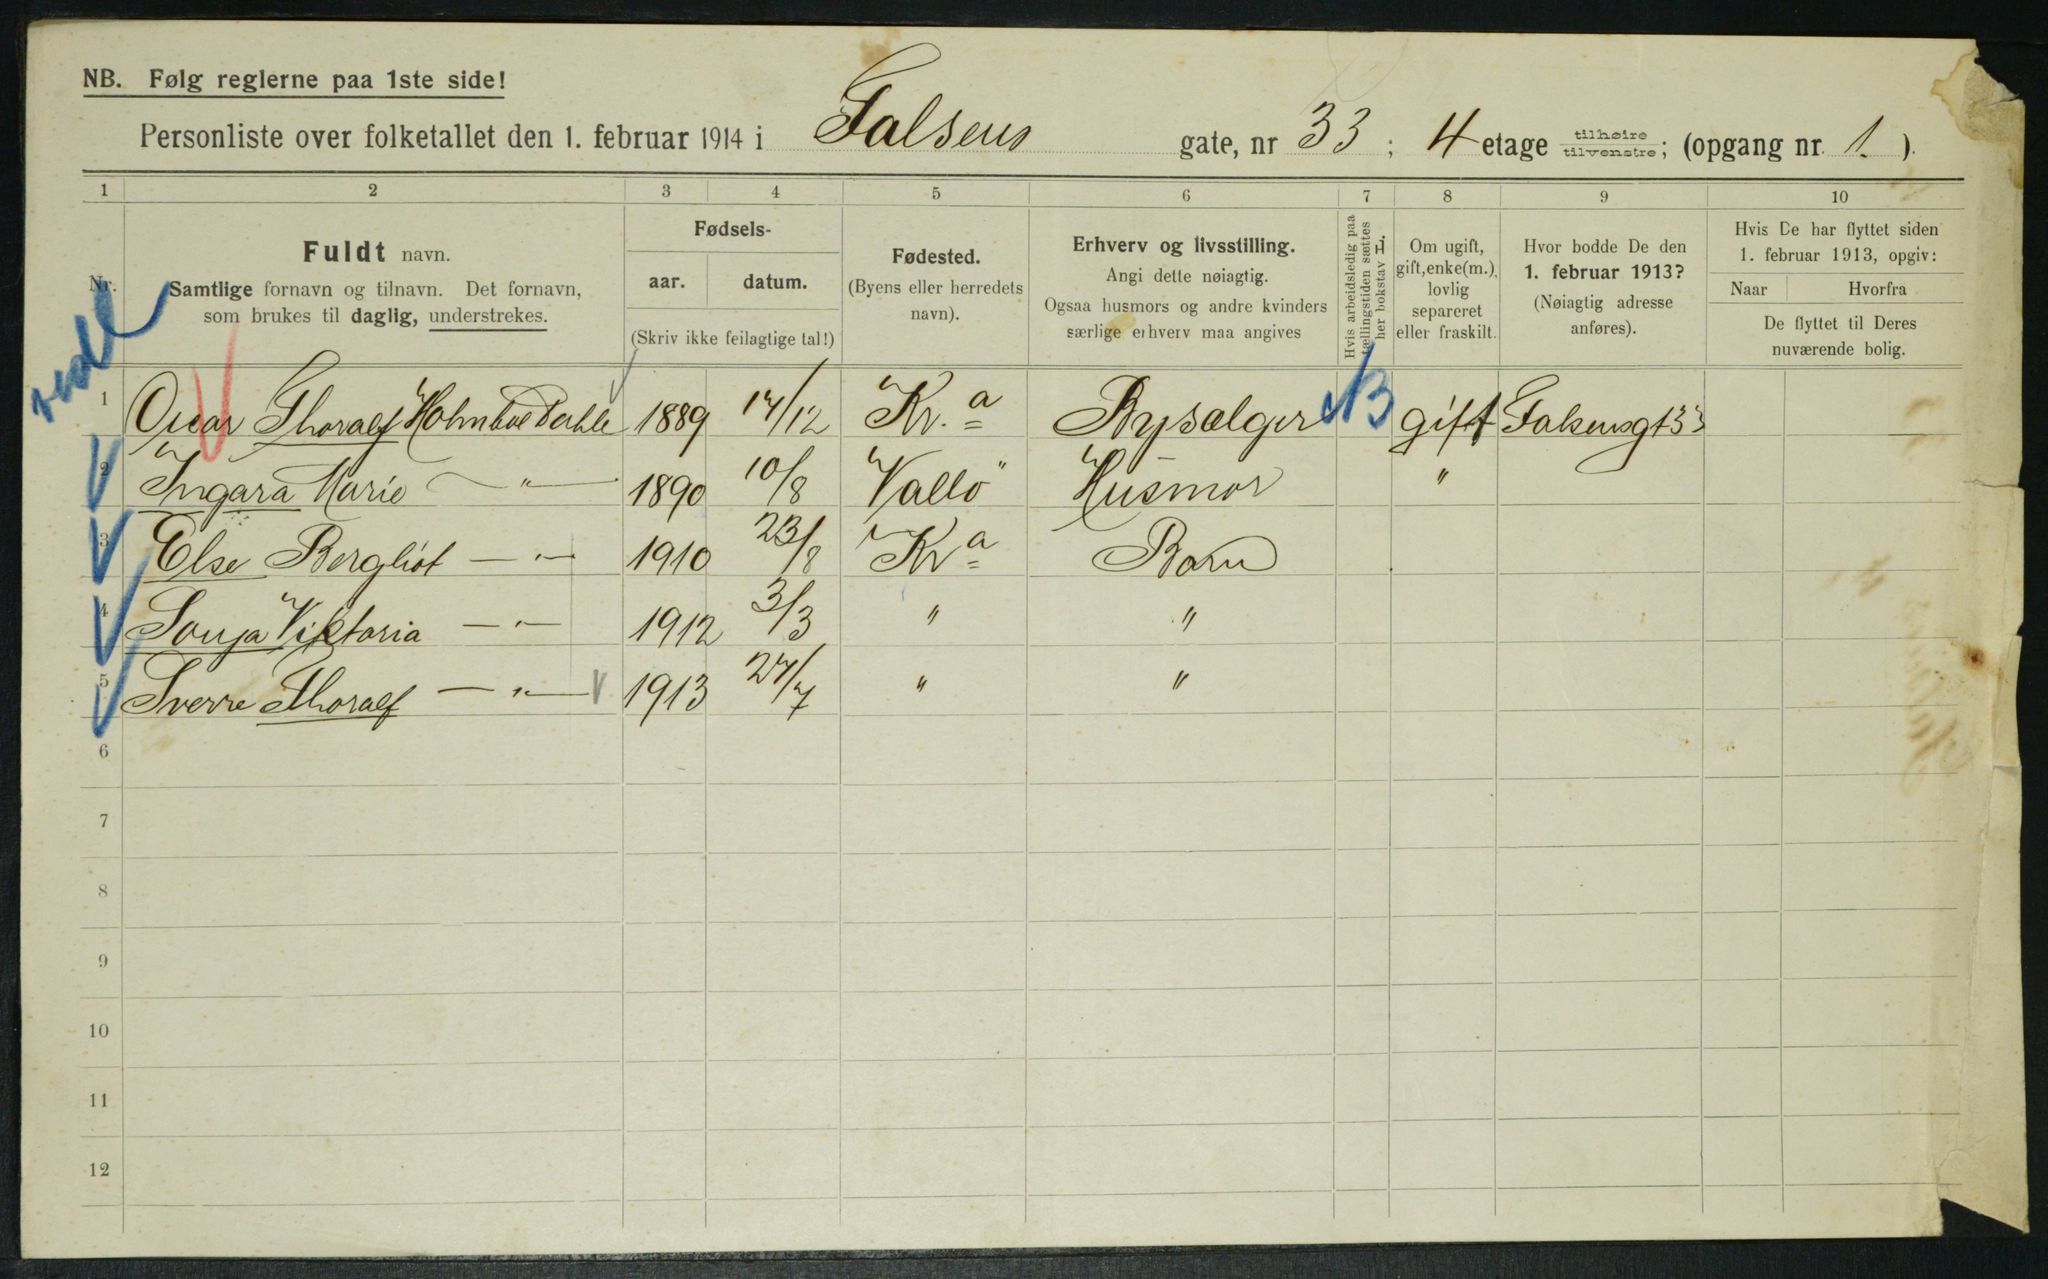 NB. Følg reglerne paa 1ste side!
Personliste over folketallet den 1. februar 1914 i Falsens gate, nr 33; 4 etage tilhøire/tilvenstre; (opgang nr. 1.).
1 2 3 4 5 6 7 8 9 10
Nr.
Fuldt navn.
Samtlige fornavn og tilnavn. Det fornavn,
som brukes til daglig, understrekes.
Fødsels-
aar. datum.
(Skriv ikke feilagtige tal!)
Fødested.
(Byens eller herredets
navn).
Erhverv og livsstilling.
Angi dette nøiagtig.
Ogsaa husmors og andre kvinders
særlige erhverv maa angives
Hvis arbeidsledig paa
tællingstiden sættes
her bokstav L.
Om ugift,
gift, enke(m.),
lovlig
separeret
eller fraskilt.
Hvor bodde De den
1. februar 1913?
(Nøiagtig adresse
anføres).
Hvis De har flyttet siden
1. februar 1913, opgiv:
Naar Hvorfra
De flyttet til Deres
nuværende bolig.
1 Oscar Thoralf Holmboe Dahle 1889 17/12 Kr.a Bysælger B gift Falsensgt 33
2 Ingara Marie — " — 1890 10/8 Vallö Husmor "
3 Else Bergliot — " — 1910 23/8 Kra Barn
4 Sonja Viktoria — " — 1912 3/3 " "
5 Sverre Thoralf — " — 1913 27/7 " "
6
7
8
9
10
11
12